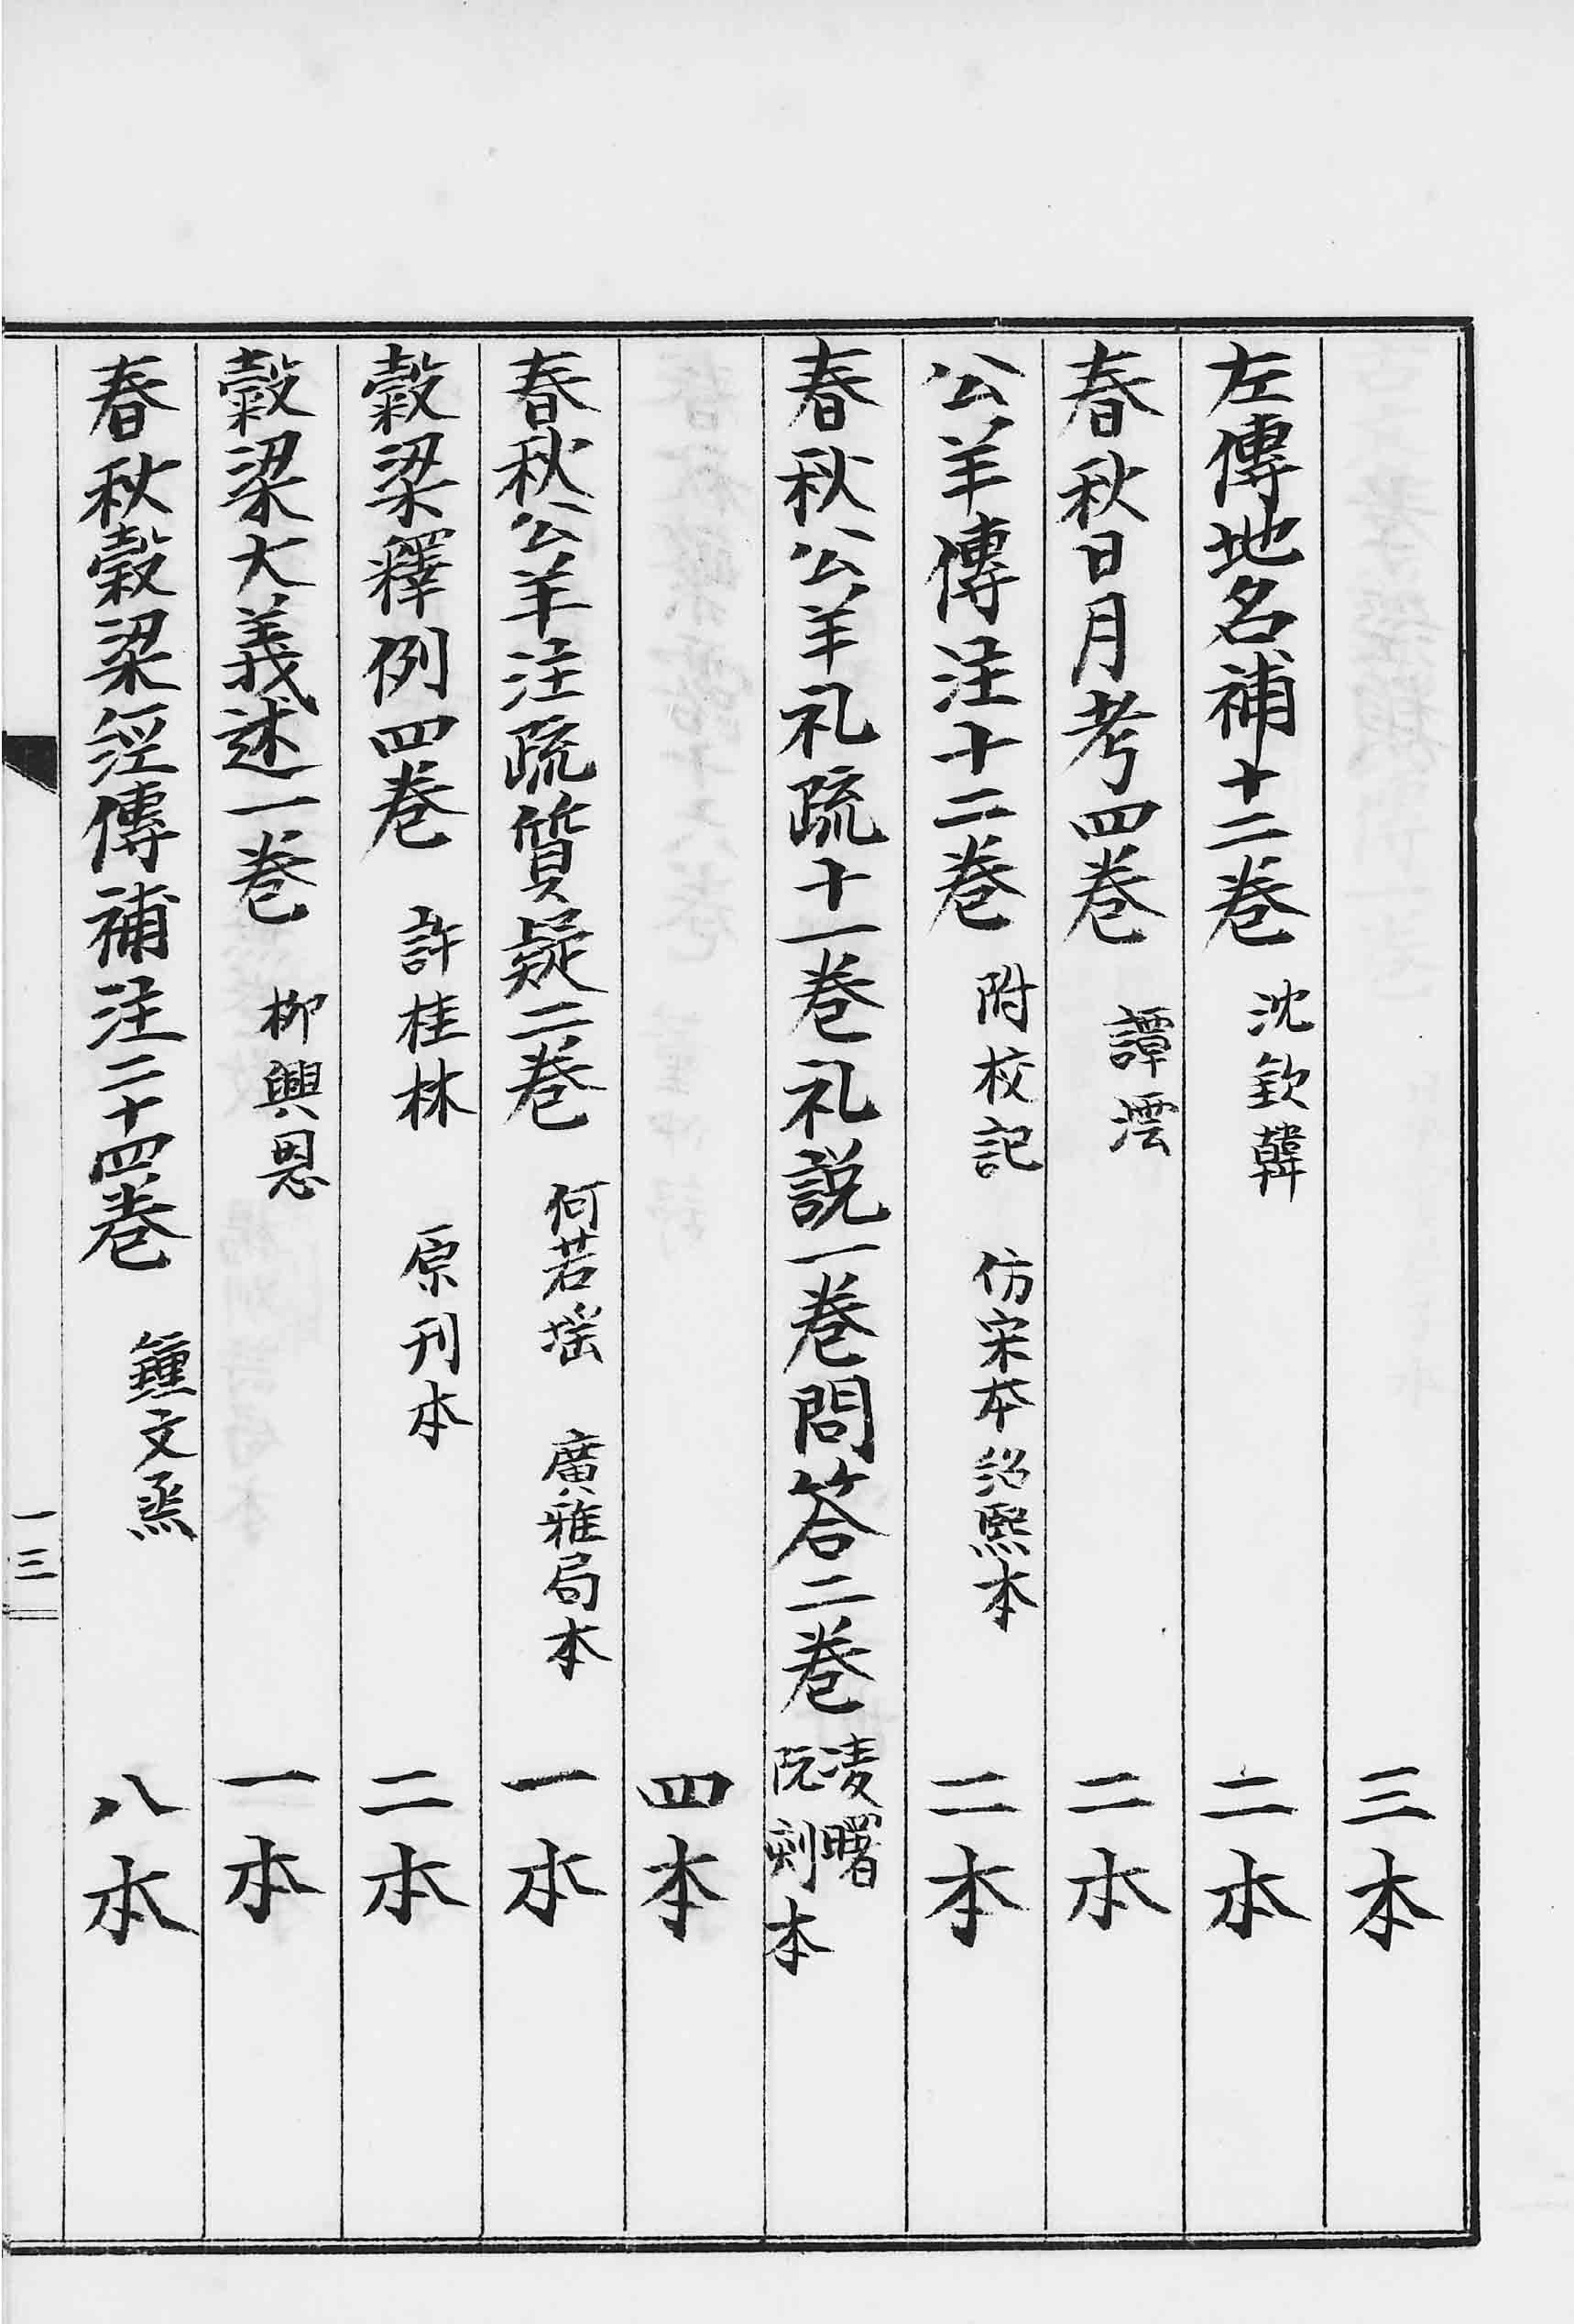 三本
左傳地名補十二卷 沈欽韓 二本
春秋日月考四卷 譚澐 二本
公羊傳注十二卷 附校記 仿宋本紹熙本 二本
春秋公羊礼疏十一卷礼説一卷問答二卷 凌曙
阮刻本
四本
春秋公羊注疏質疑二卷 何若瑶 廣雅局本 一本
穀梁釋例四卷 許桂林 原刊本 二本
穀梁大義述一卷 柳興恩 一本
春秋穀梁經傳補注二十四卷 鍾文烝 八本
一三